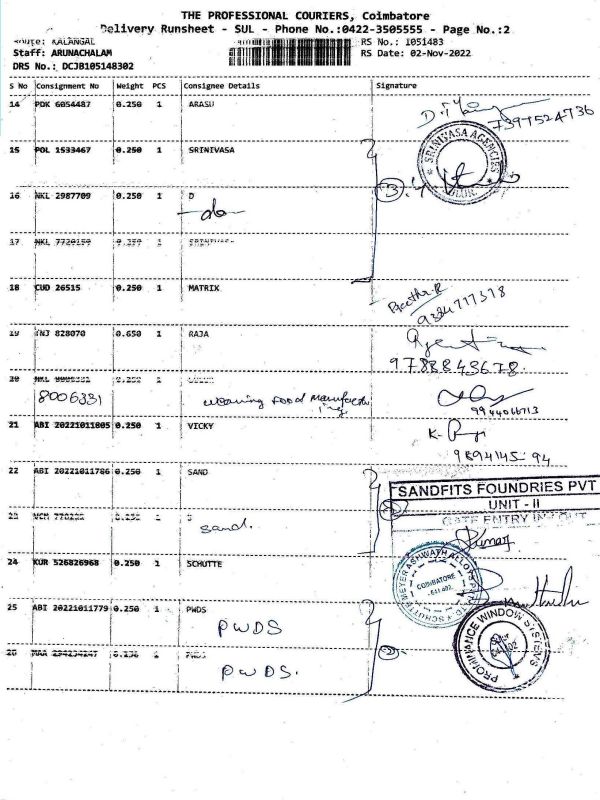 THE PROFESSIONAL COURIERS, Coimbatore
Delivery Runsheet - SUL - Phone No.:0422-3505555 - Page No.:2
Route: KALANGAL
Staff: ARUNACHALAM
DRS No.: DCJB105148302
RS No.: I051483
RS Date: 02-Nov-2022
S No Consignment No Weight PCS Consignee Details Signature
14 PDK 6054487 0.250 1 ARASU
7397524736
15 POL 1533467 0.250 1 SRINIVASA
SRINIVASA AGENCIES
SULUR
3
16 NKL 2987709 0.250 1 D
-do-
17 NKL
18 CUD 26515 0.250 1 MATRIX
9384777378
19 TNJ 828070 0.650 1 RAJA
9788843678
20 NKL
8006331 weaning food manufacturing
9944066713
21 ABI 20221011805 0.250 1 VICKY
9894145 94
22 ABI 20221011786 0.250 1 SAND
SANDFITS FOUNDRIES PVT
UNIT - II
GATE ENTRY IN/OUT
23
sand.
Kumar
24 KUR 526826968 0.250 1 SCHUTTE
SCHUTTE MEYER ASHWATH ALLOYS
COIMBATORE
25 ABI 20221011779 0.250 1 PWDS
PWDS
PROMINANCE WINDOW SYSTEMS
2
26
PWDS.